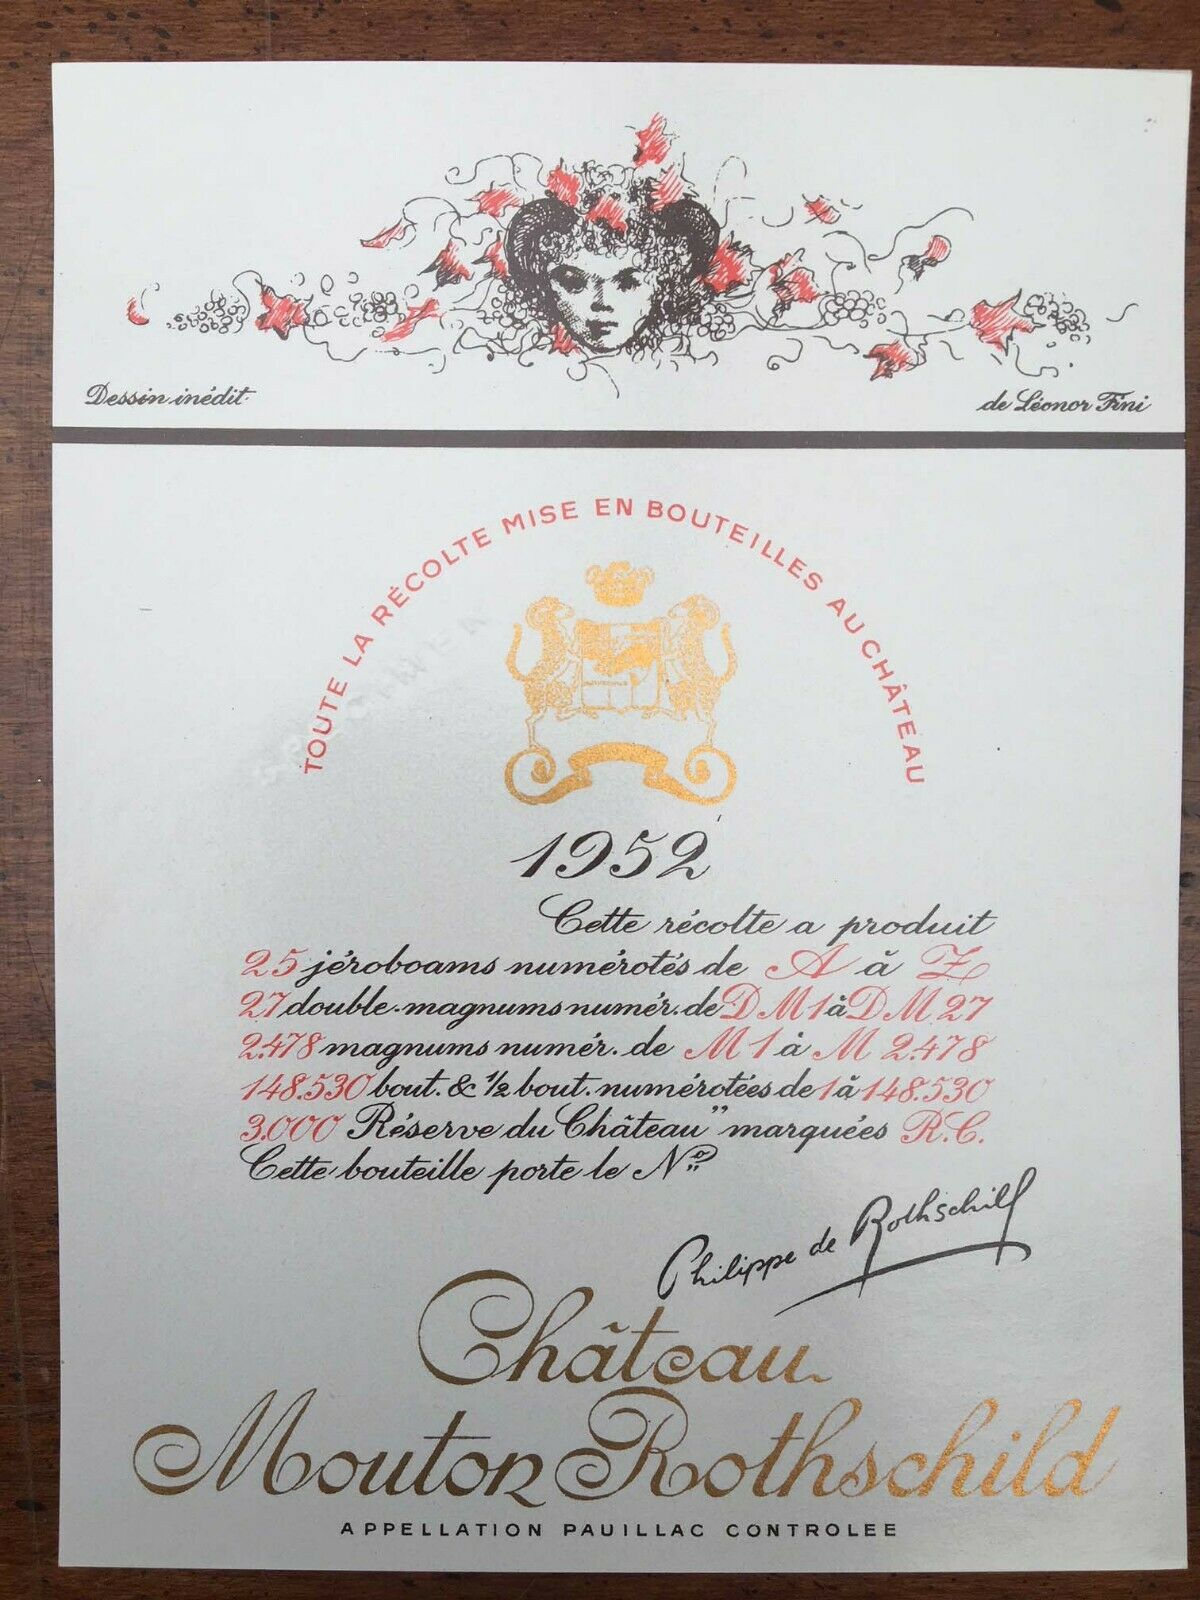 Dessin inédit
de Léonor Fini
TOUTE LA RÉCOLTE MISE EN BOUTEILLES AU CHÂTEAU
1952
Cette récolte a produit
25 jéroboams numérotés de A à Z
27 double-magnums numér. de DM1 à DM27
2.478 magnums numér. de M1 à M 2.478
148.530 bout. & 1/2 bout. numérotées de 1 à 148.530
3.000 Réserve du Château" marquées R.C.
Cette bouteille porte le Nº
Philippe de Rothschild
Château
Mouton Rothschild
APPELLATION PAUILLAC CONTROLEE